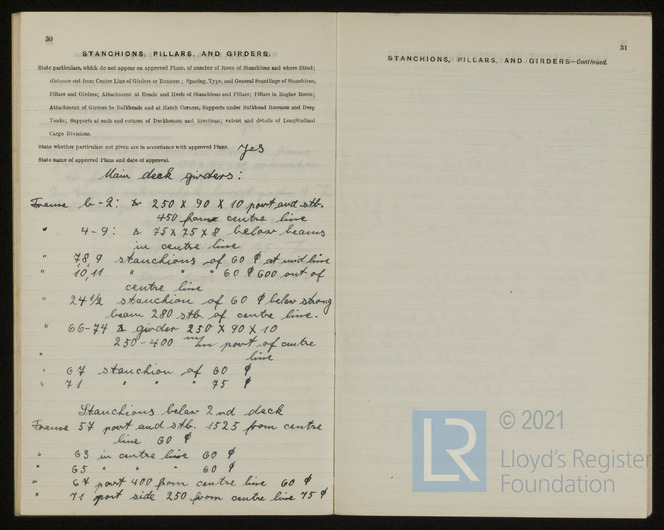 30
STANCHIONS, PILLARS, AND GIRDERS.
State particulars, which do not appear on approved Plans, of number of Rows of Stanchions and where fitted;
distance out from Centre Line of Girders or Runners; Spacing, Type, and General Scantlings of Stanchions,
Pillars and Girders; Attachment at Heads and Heels of Stanchions and Pillars; Pillars in Engine Room;
Attachment of Girders to Bulkheads and at Hatch Corners, Supports under Bulkhead Recesses and Deep
Tanks; Supports at ends and corners of Deckhouses and Erections; extent and details of Longitudinal
Cargo Divisions.
State whether particulars not given are in accordance with approved Plans. Yes
State name of approved Plans and date of approval.
Main deck girders:
Frame 6-2: 250 x 90 x 10 port and stb.
450 from centre line
" 4-9: 75 x 75 x 8 below beams
in centre line
" 7,8,9 stanchions of 60 ϕ at mid line
" 10,11 " " " 60 ϕ 600 out of
centre line
" 24½ stanchion of 60 ϕ below strong
beam 280 stb. of centre line.
" 66-74 girder 250 x 90 x 10
250-400 m/m port of centre
" line
" 67 stanchion of 60 ϕ
" 71 " " " 75 ϕ
Stanchions below 2nd deck
Frame 57 port and stb. 1525 from centre
line 60 ϕ
" 63 in centre line 60 ϕ
" 65 " " " 60 ϕ
" 67 port 400 from centre line 60 ϕ
" 71 port side 250 from centre line 75 ϕ
31
STANCHIONS, PILLARS, AND GIRDERS—Continued.
LR
© 2021
Lloyd's Register
Foundation